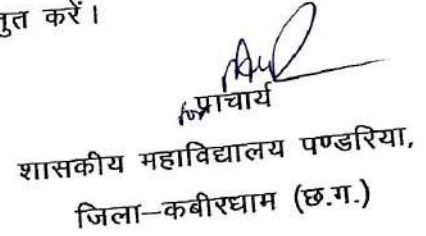 करें।
प्राचार्य
शासकीय महाविद्यालय पण्डरिया,
जिला–कबीरधाम (छ.ग.)